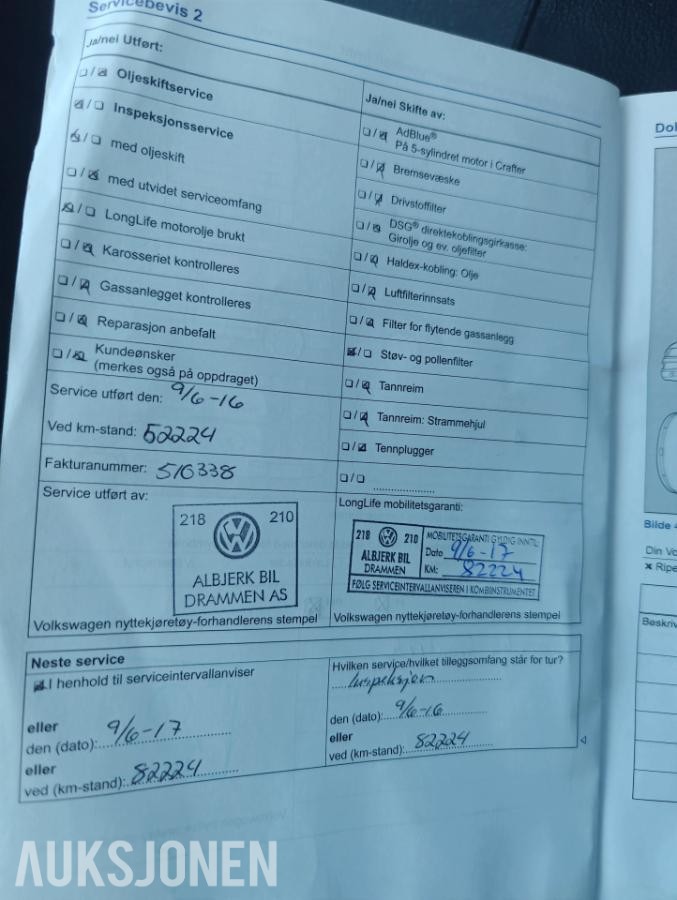 Servicebevis 2
Ja/nei Utført:
☐/☒ Oljeskiftservice
☒/☐ Inspeksjonsservice
☒/☐ med oljeskift
☐/☒ med utvidet serviceomfang
☒/☐ LongLife motorolje brukt
☐/☒ Karosseriet kontrolleres
☐/☒ Gassanlegget kontrolleres
☐/☒ Reparasjon anbefalt
☐/☒ Kundeønsker
(merkes også på oppdraget)
Service utført den: 9/6-16
Ved km-stand: 52224
Fakturanummer: 516338
Service utført av:
218 210
ALBJERK BIL
DRAMMEN AS
Volkswagen nyttekjøretøy-forhandlerens stempel
Ja/nei Skifte av:
☐/☒ AdBlue®
På 5-sylindret motor i Crafter
☐/☒ Bremsevæske
☐/☒ Drivstoffilter
☐/☒ DSG® direktekoblingsgirkasse:
Girolje og ev. oljefilter
☐/☒ Haldex-kobling: Olje
☐/☒ Luftfilterinnsats
☐/☒ Filter for flytende gassanlegg
☒/☐ Støv- og pollenfilter
☐/☒ Tannreim
☐/☒ Tannreim: Strammehjul
☐/☒ Tennplugger
☐/☐ ....................
LongLife mobilitetsgaranti:
218 210
ALBJERK BIL
DRAMMEN
MOBILITETSGARANTI GYLDIG INNTIL:
Dato 9/6-17
KM: 82224
FØLG SERVICEINTERVALLANVISEREN I KOMBIINSTRUMENTET
Volkswagen nyttekjøretøy-forhandlerens stempel
Neste service
☒ I henhold til serviceintervallanviser
eller
den (dato): 9/6-17
eller
ved (km-stand): 82224
Hvilken service/hvilket tilleggsomfang står for tur?
Inspeksjon
den (dato): 9/6-16
eller
ved (km-stand): 82224
Bilde
Din Vo
Beskriv
AUKSJONEN